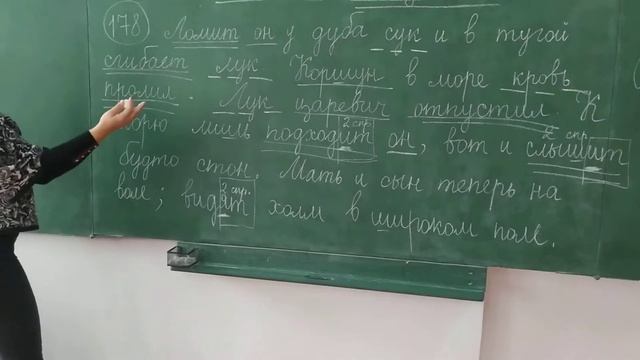 178 Ломит он у дуба сук и в тугой
сгибает лук. Коршун в море кровь
пролил. Лук царевич отпустил. К
морю лишь подходит он, вот и слышит
2 спр. 2 спр.
будто стон. Мать и сын теперь на
воле; видят холм в широком поле.
2 спр.